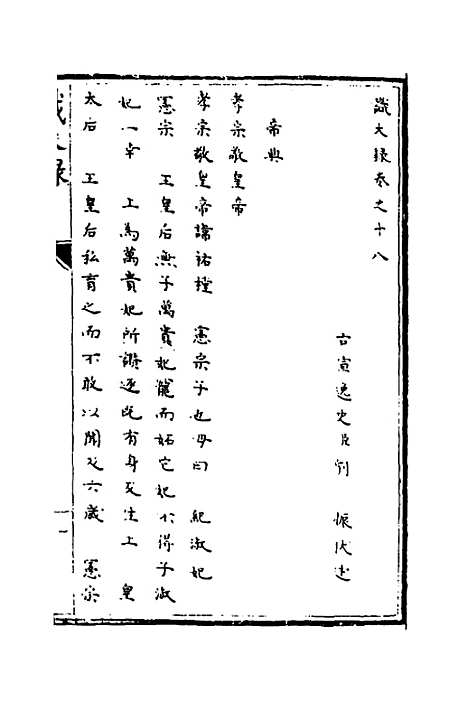 識大録卷之十八
古宣逸史臣劉　振伏述
帝典
孝宗敬皇帝
孝宗敬皇帝諱祐樘　憲宗子也母曰　紀淑妃
憲宗　王皇后無子萬貴妃寵而妬它妃不得子淑
妃一幸　上為萬貴妃所譖逐既有身及生上　皇
太后　王皇后私育之而不敢以聞及六歲　憲宗
識大録
一